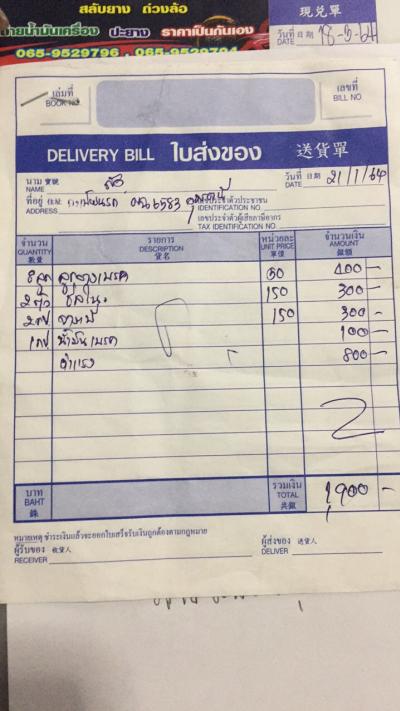 สลับยาง ถ่วงล้อ
ายน้ำมันเครื่อง ปะยาง ราคาเป็นกันเอง
065-9529796 , 065-9529794
現兑單
วันที่ 日期 18-5-64
DATE
เล่มที่
BOOK NO.
เลขที่
BILL NO.
DELIVERY BILL ใบส่งของ 送貨單
นาม 寳號
NAME
วันที่ 日期 21/1/64
DATE
ที่อยู่ 住址 6583
ADDRESS
เลขประจำตัวประชาชน
IDENTIFICATION NO.
เลขประจำตัวผู้เสียภาษีอากร
TAX IDENTIFICATION NO.
จำนวน รายการ หน่วยละ จำนวนเงิน
QUANTITY DESCRIPTION UNIT PRICE AMOUNT
數量 貨名 單價 銀額
8ลูก ลูกยางเบรค 50 400-
2ตัว 150 300-
150 300-
น้ำมันเบรค 100-
ค่าแรง 800-
2
บาท รวมเงิน
BAHT TOTAL 1900-
銖 共銀
หมายเหตุ ชำระเงินแล้วจะออกใบเสร็จรับเงินถูกต้องตามกฎหมาย
ผู้รับของ 收貨人
RECEIVER
ผู้ส่งของ 送貨人
DELIVER